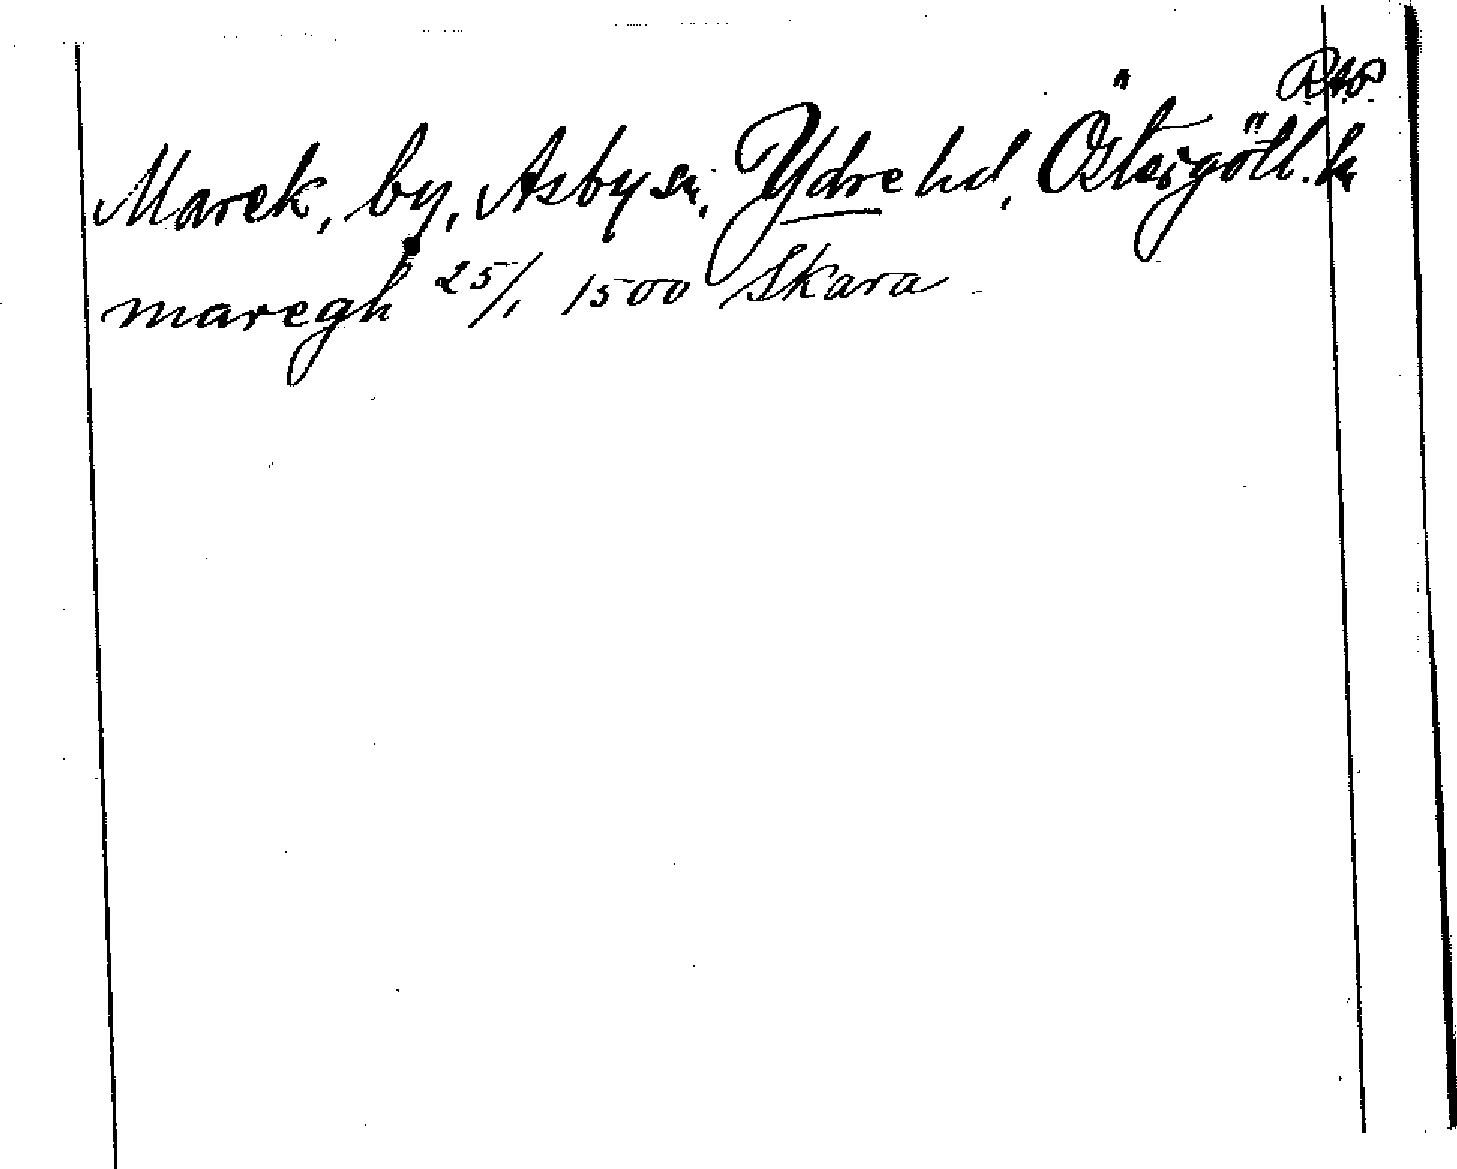 RAP
Marek, by, Asby sn, Ydre hd, Östergötl. ln
maregh 25/1 1500 Skara